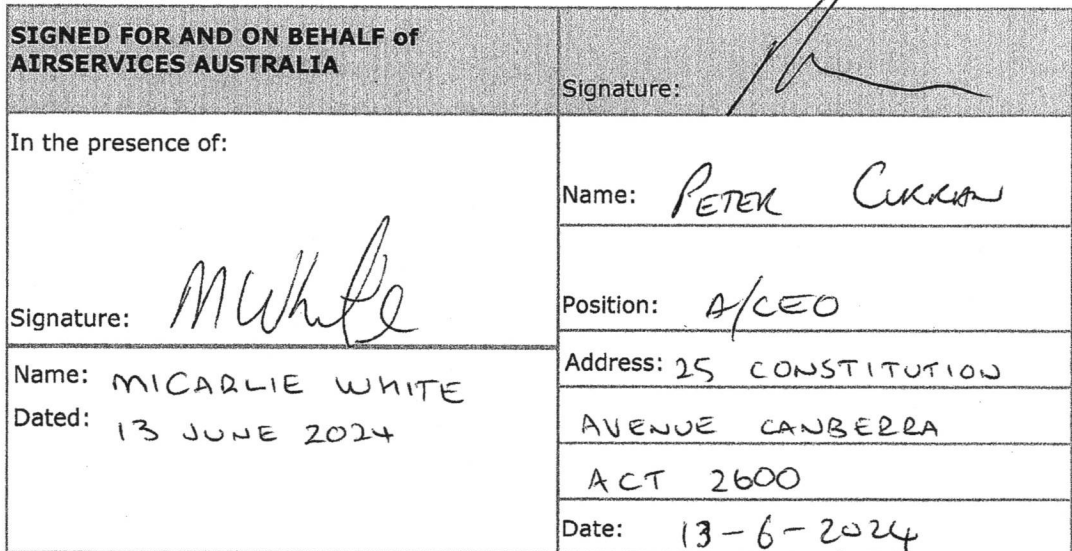 SIGNED FOR AND ON BEHALF of
AIRSERVICES AUSTRALIA
In the presence of:
Signature: MWhite
Name: MICARLIE WHITE
Dated: 13 JUNE 2024
Signature:
Name: PETER CURRAN
Position: A/CEO
Address: 25 CONSTITUTION
AVENUE CANBERRA
ACT 2600
Date: 13-6-2024